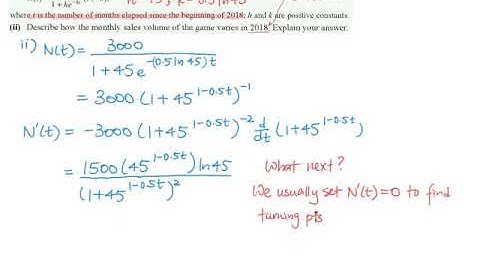 1 + he
where t is the number of months elapsed since the beginning of 2018, h and k are positive constants
(ii) Describe how the monthly sales volume of the game varies in 2018. Explain your answer.
ii) N(t) = 3000 / 1 + 45e^-(0.5 ln 45)t
= 3000 (1 + 45^1-0.5t)^-1
N'(t) = -3000 (1 + 45^1-0.5t)^-2 d/dt (1 + 45^1-0.5t)
= 1500 (45^1-0.5t) ln 45 / (1 + 45^1-0.5t)^2
What next?
We usually set N'(t) = 0 to find
turning pts